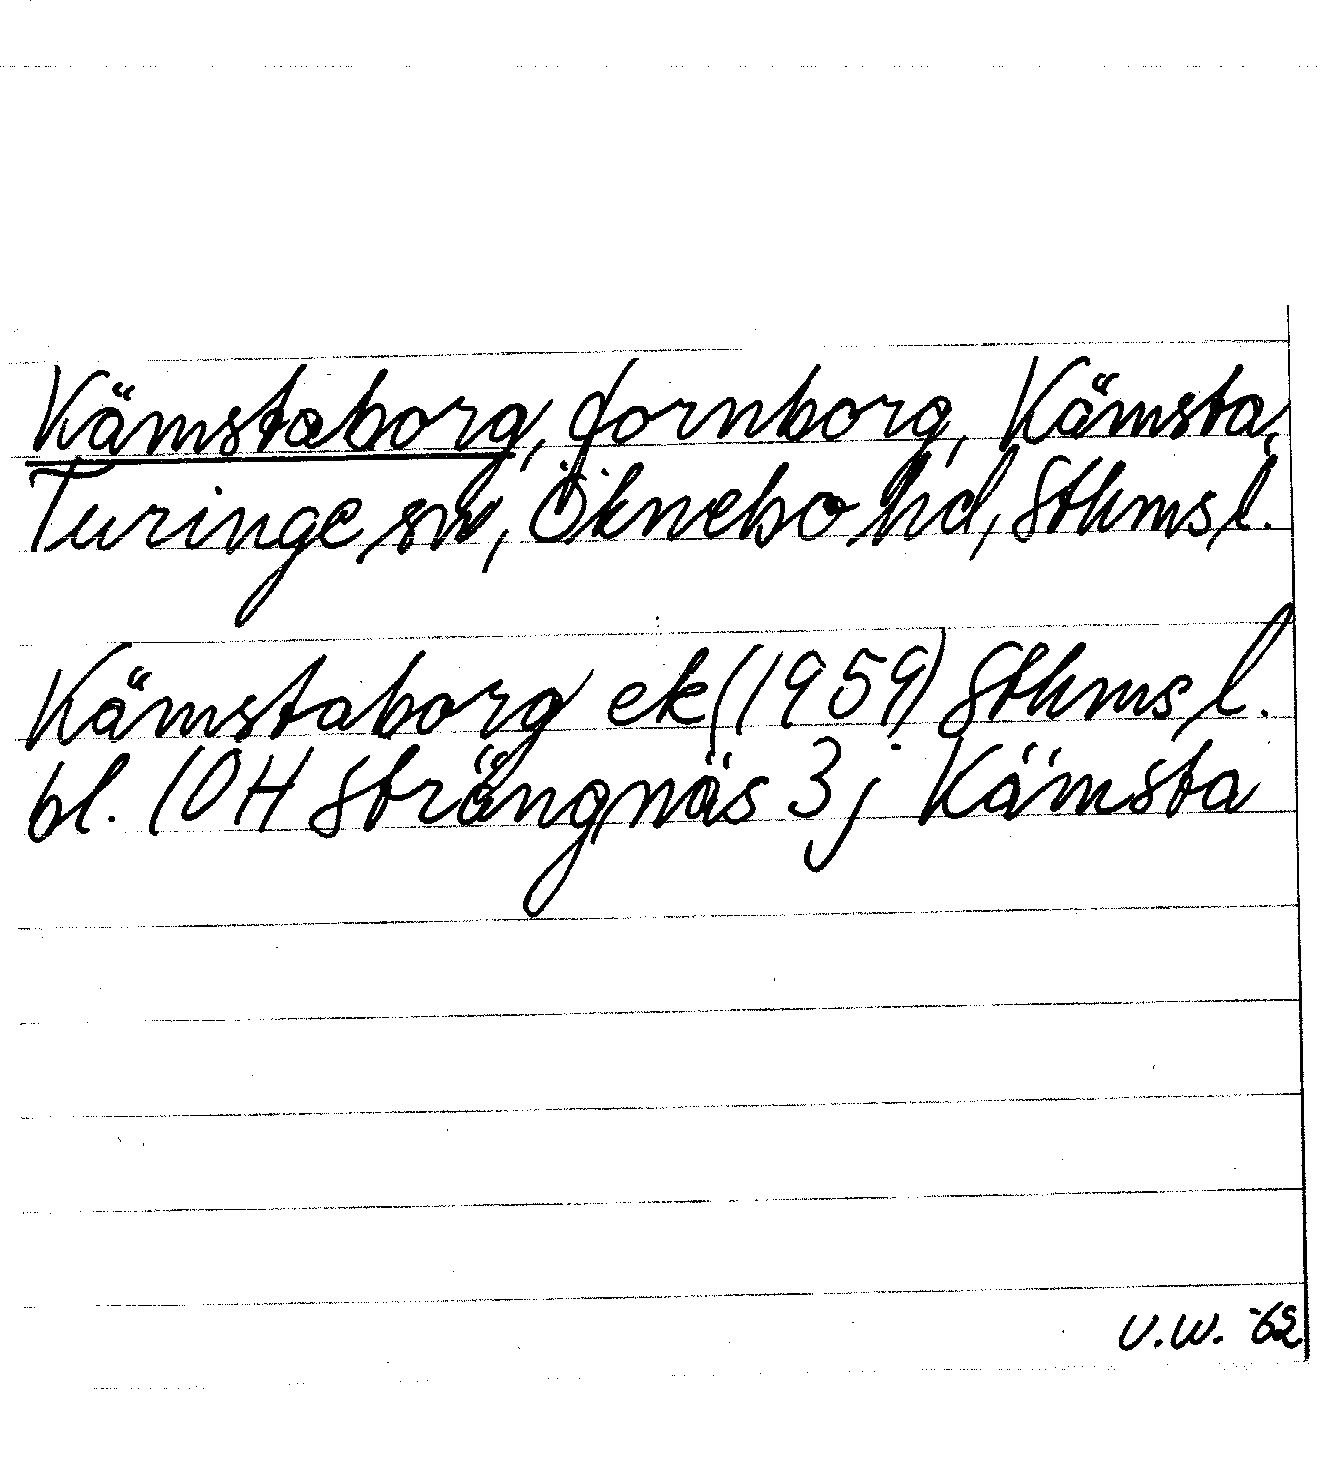 Kämstaborg, fornborg, Kämsta,
Turinge sn, Öknebo hd, Sthms l.
Kämstaborg ek (1959) Sthms l.
bl. 10H Strängnäs 3j Kämsta
U.W. '62